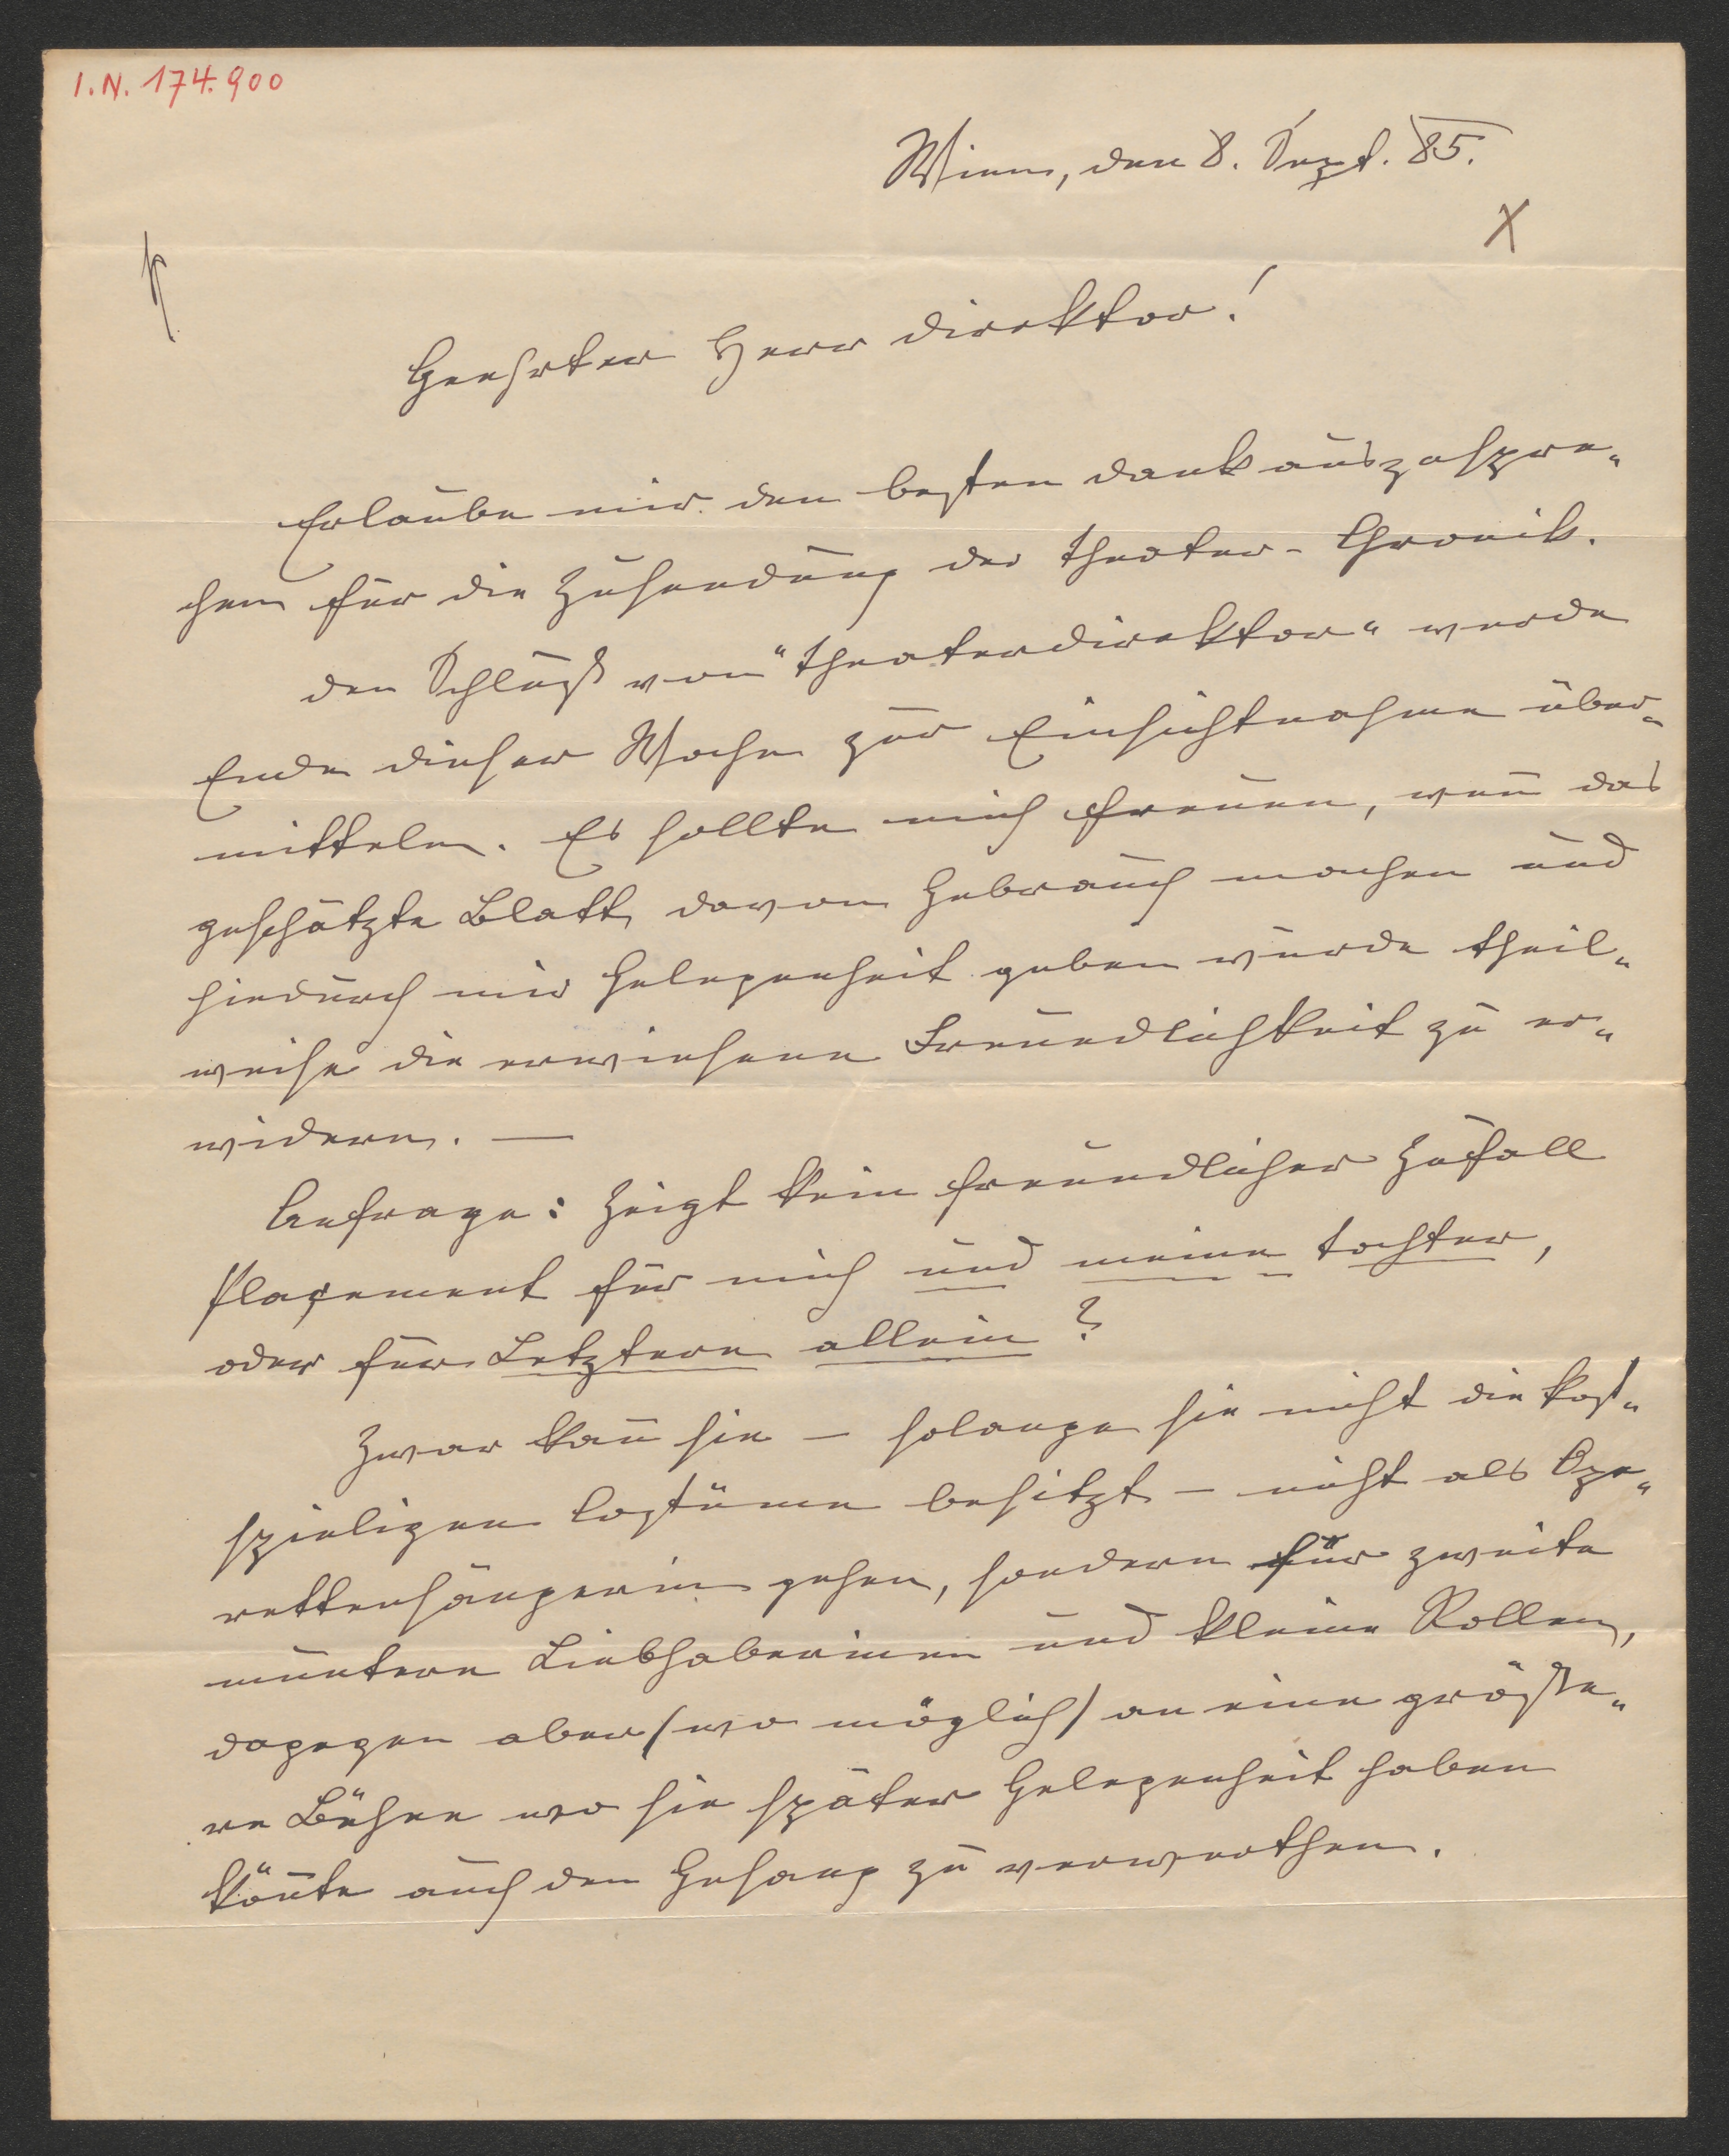 I.N. 174.900
Wien, den 8. Sept. 85.
X
Geehrter Herr Direktor!
Erlaube mir den besten Dank auszuspre„
chen für die Zusendung der Theater-Chronik.
Den Schluß vom "Theaterdirektor" werde
Ende dieser Woche zur Einsichtnahme über„
mitteln. Es sollte mich freuen, wen̄ das
geschätzte Blatt davon Gebrauch machen und
hiedurch mir Gelegenheit geben würde theil„
weise die erwiesene Freundlichkeit zu er„
widern. —
Anfrage: Zeigt kein freundlicher Zufall
Plaçement für mich und meine Tochter,
oder für Letztere allein?
Zwar kan̄ sie – solange sie nicht die kost„
spieligen Costüme besitzt – nicht als Ope„
rettensängerin gehen, sondern für zweite
muntere Liebhaberinen und kleine Rollen,
dagegen aber (wo möglich) an eine größe„
re Bühne wo sie später Gelegenheit haben
kön̄te auch den Gesang zu verwerthen.